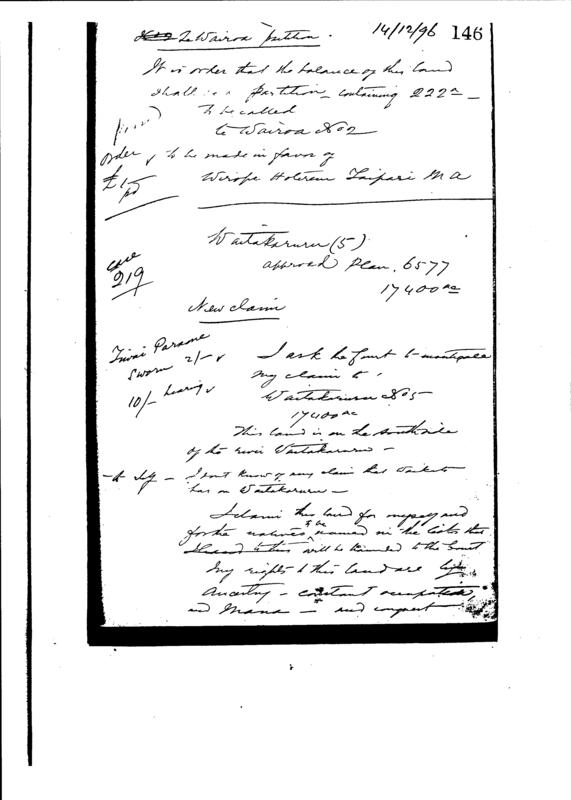 Te Wairoa partition. 14/12/96 146
It is order that the balance of this land
shall is a partition - containing 222ac -
to be called
te Wairoa No 2
Order to be made in favor of
£1 pd
Wirope Hoterene Taipari M A
Waitakaruru (5)
case
219
approved Plan. 6577
17400ac
New claim
Sworn 2/-
10/- hearing
I ask the Court to investigate
my claim to
Waitakaruru No 5
17400ac
This land is on the south side
of the river Waitakaruru -
I dont know of any claim that Waikato
has on Waitakaruru -
I claim this land for myself and
for the natives to be named in the lists that
will be handed to the Court
My rights to this land are by
Ancestry - constant occupation,
and Mana - and conquest